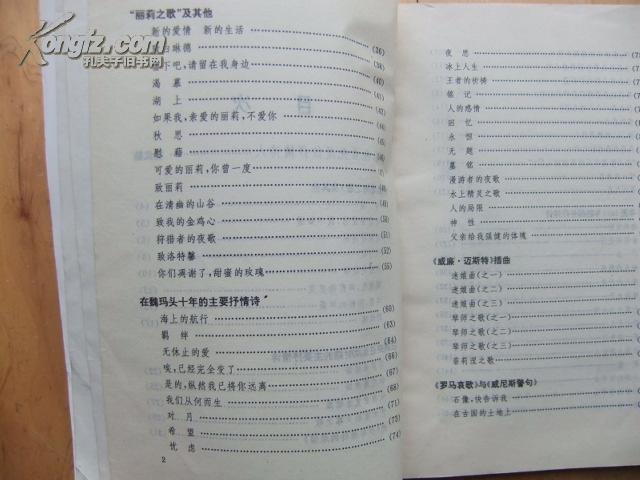 Kongfz.com
孔夫子旧书网
“丽莉之歌”及其他
新的爱情 新的生活 (36)
琳德 (38)
下吧，请留在我身边 (39)
渴慕 (40)
湖上 (41)
如果我，亲爱的丽莉，不爱你
秋思
慰藉
可爱的丽莉，你曾一度
致丽莉
在清幽的山谷
致我的金鸡心 (50)
狩猎者的夜歌 (51)
致洛特馨 (52)
你们凋谢了，甜蜜的玫瑰 (55)
在魏玛头十年的主要抒情诗
海上的航行 (60)
羁绊 (63)
无休止的爱 (64)
唉，已经完全变了 (66)
是的，纵然我已将你远离 (67)
我们从何而生 (68)
对月 (71)
希望 (73)
忧虑 (74)
2
夜思
冰上人生
王者的祈祷
铭记
人的感情
回忆
永恒
无题
墓铭
漫游者的夜歌
水上精灵之歌
人的局限
神性
父亲给我强健的体魄
《威廉·迈斯特》插曲
迷娘曲（之一）
迷娘曲（之二）
迷娘曲（之三）
琴师之歌（之一）
琴师之歌（之二）
琴师之歌（之三）
菲莉涅之歌
《罗马哀歌》与《威尼斯警句》
石像，快告诉我
在古国的土地上